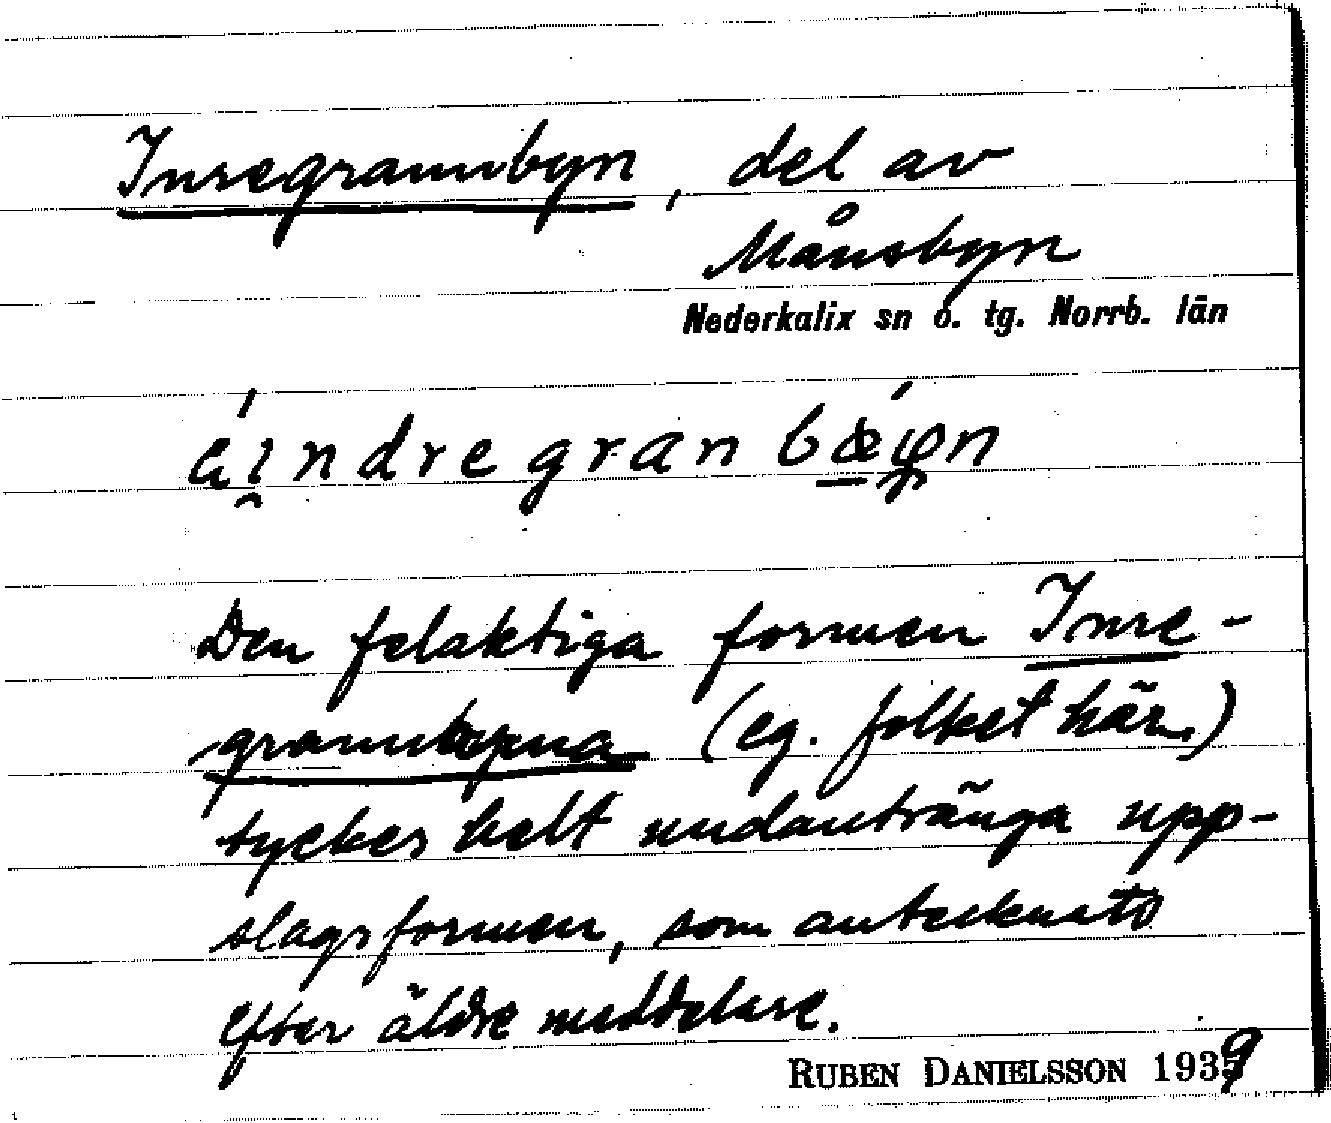 Inregrannbyn, del av
Månsbyn
Nederkalix sn o. tg. Norrb. län
Den felaktiga formen Inre-
grannbyna (eg. folket här.)
tyckes helt undantränga upp-
slagsformen, som antecknats
efter äldre meddelare.
RUBEN DANIELSSON 1939